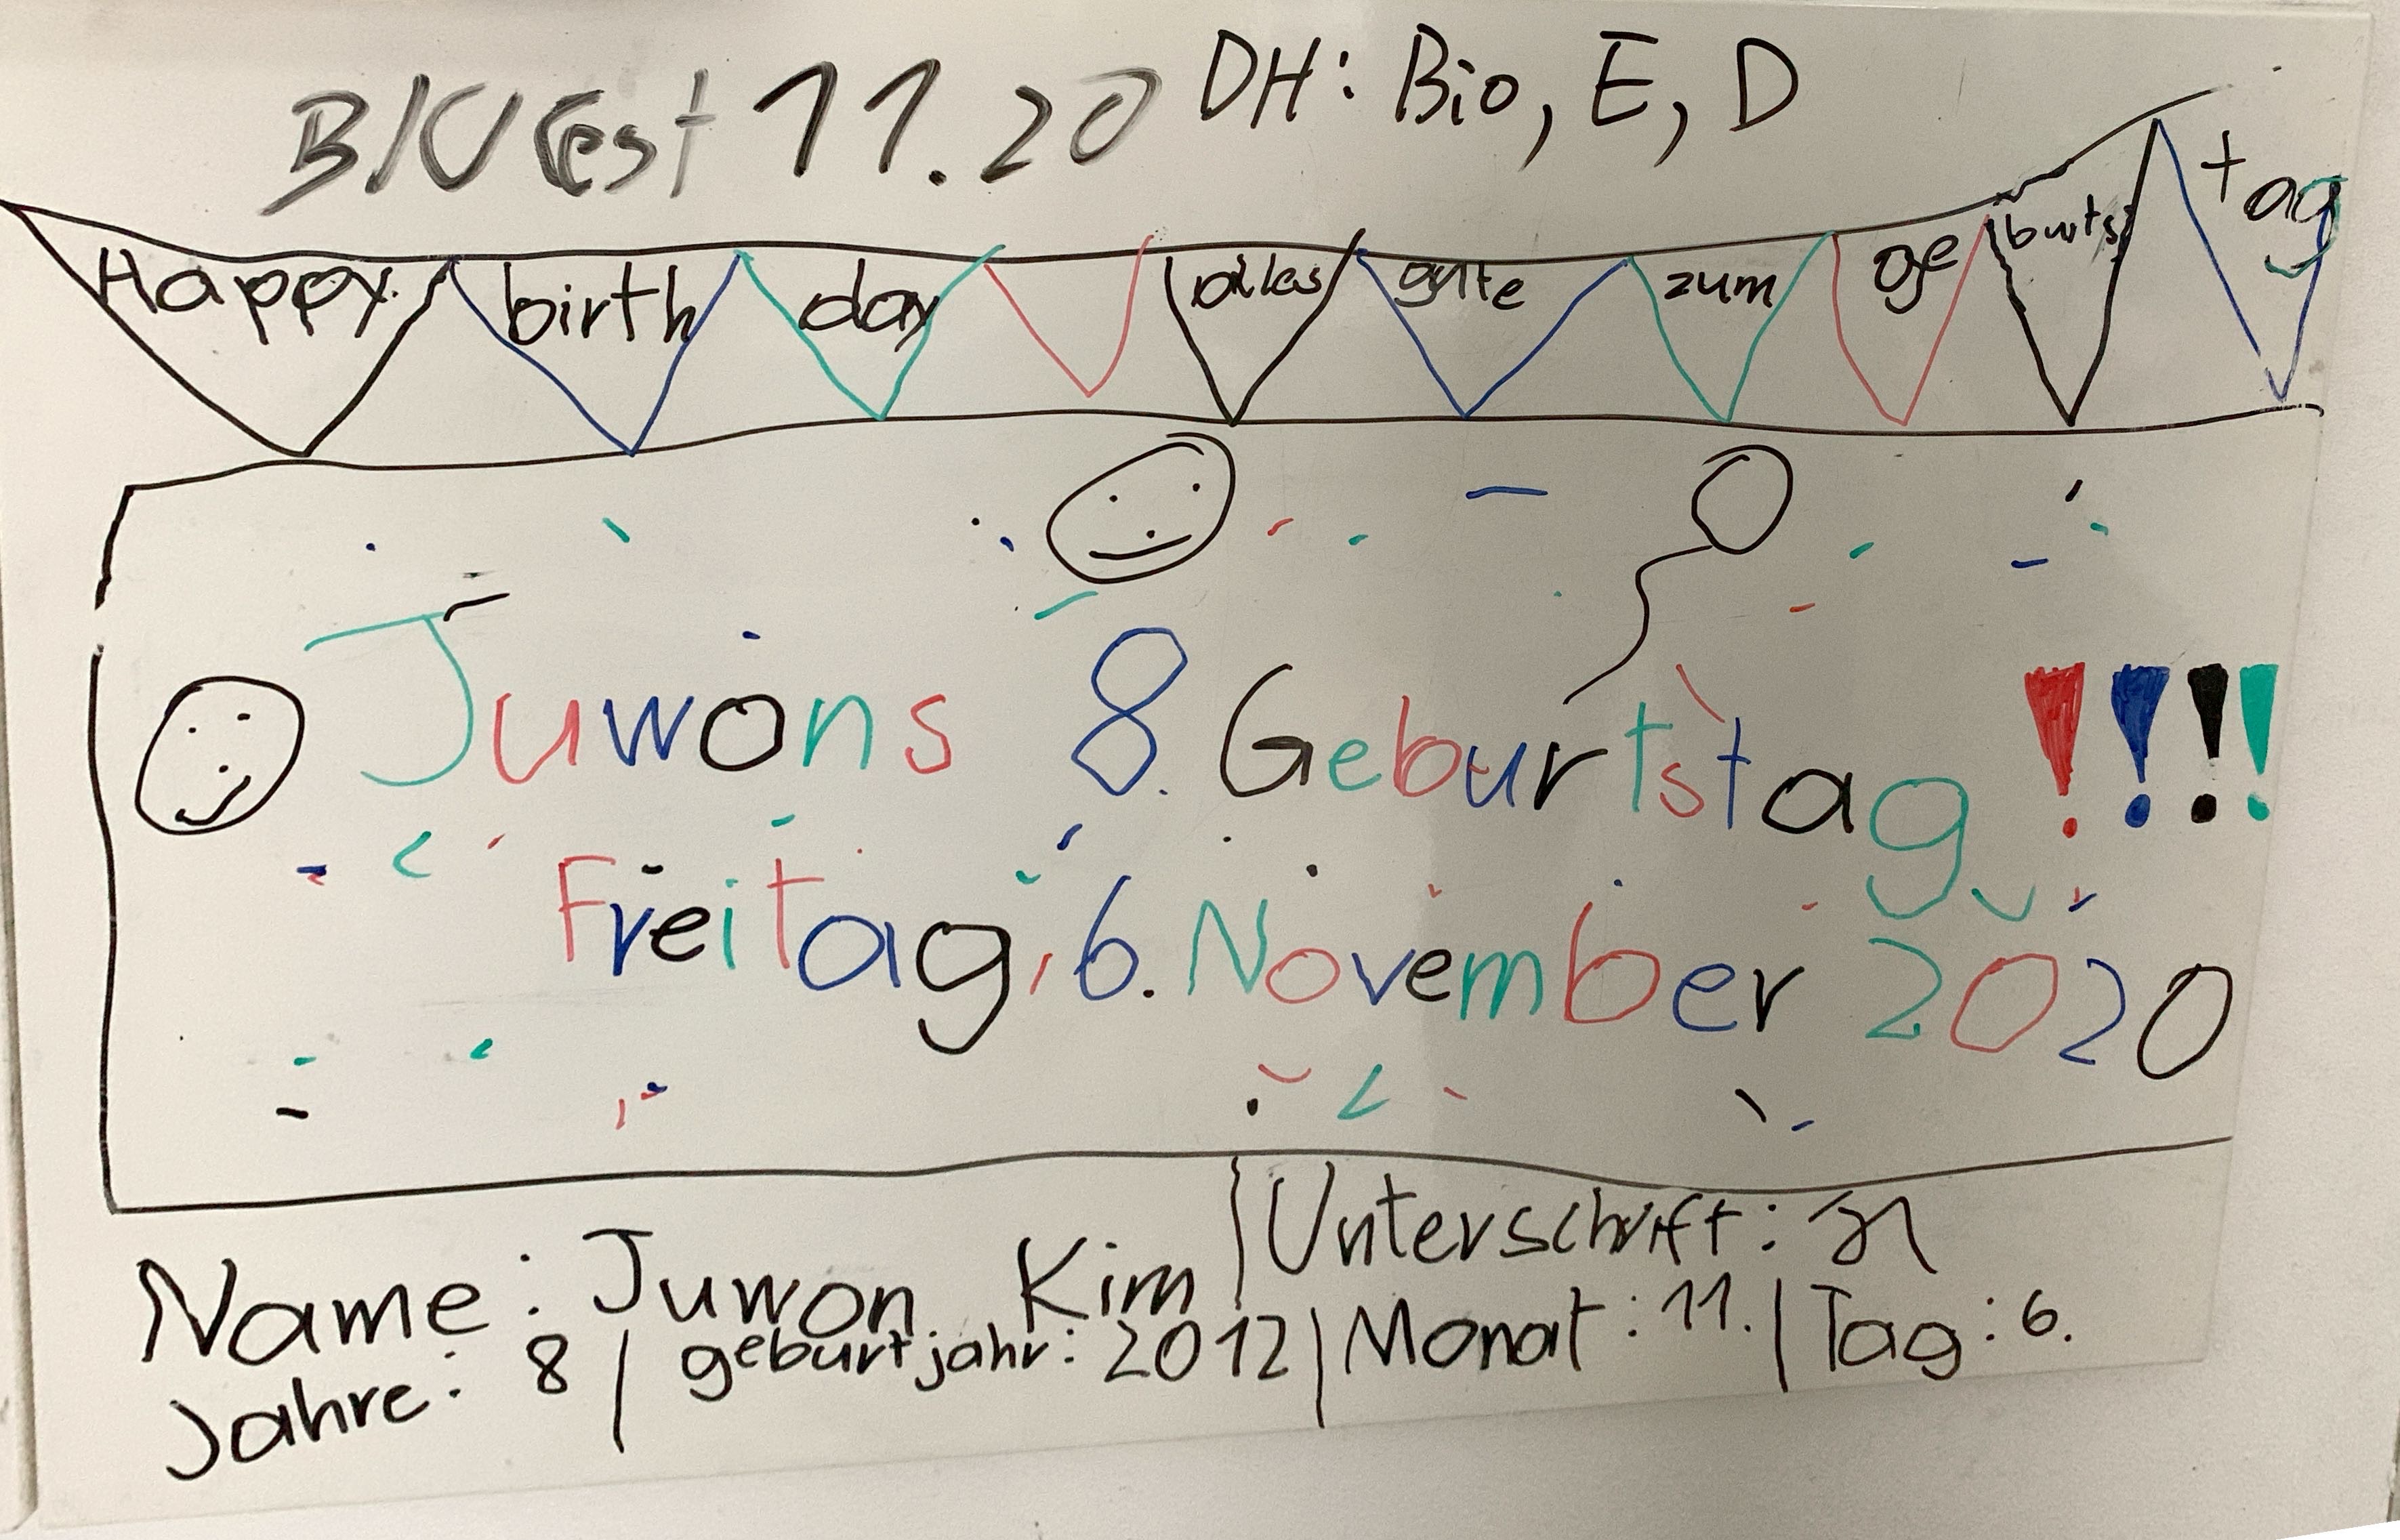 11.20 DH: Bio, E, D
Happy birth day alles gute zum ge burts tag
Juwons 8. Geburtstag !!!!
Freitag, 6. November 2020
Name: Juwon Kim | Unterschrift:
Jahre: 8 | geburtjahr: 2012 | Monat: 11. | Tag: 6.